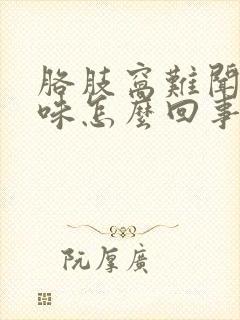 胳肢窩難聞
味怎麼回事
阮厚廣